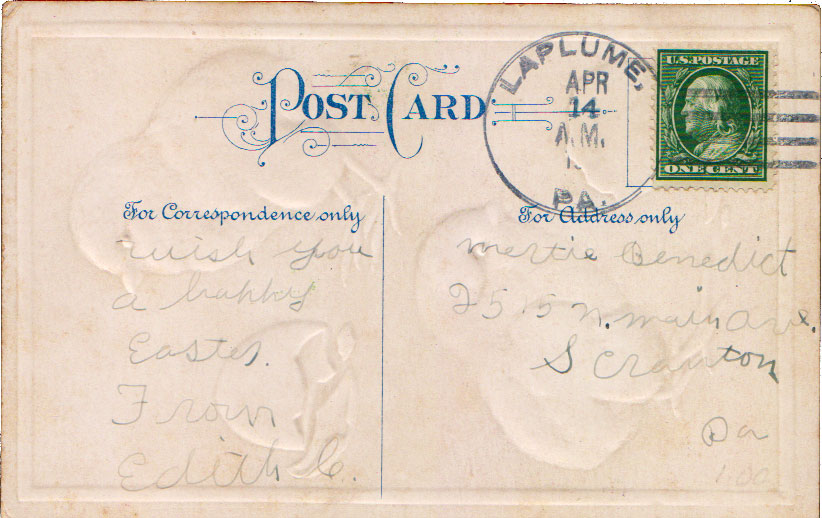 POST CARD
LAPLUME,
APR
14
A.M.
PA.
U.S. POSTAGE
ONE CENT
For Correspondence only
wish you
a happy
Easter.
From
Edith C.
For Address only
Mertie Benedict
2515 N. Main Ave.
Scranton
Pa
1.00